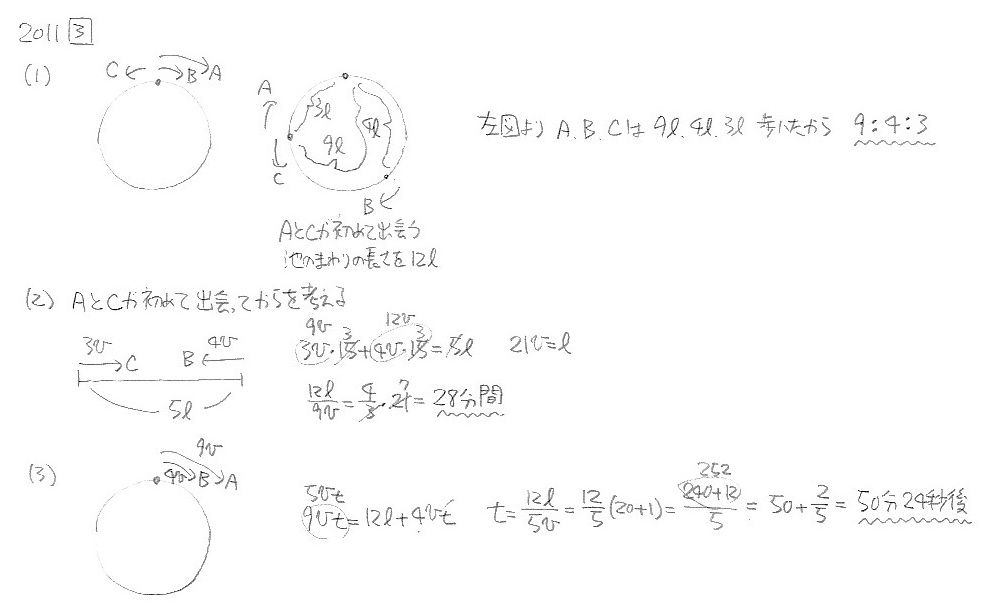 2011 3
(1)
C B A
A
3l 4l
9l
C
B
左図より A.B.Cは 9l.4l.3l 歩いたから 9:4:3
AとCが初めて出会う
池のまわりの長さを12l
(2) AとCが初めて出会ってからを考える
3v C B 4v
5l
9v 3 12v 3
3v・15+4v・15=5l 21v=l
12l/9v = 4/3・21 7 = 28分間
(3)
9v
4v B A
5vt
9vt=12l+4vt t=12l/5v=12/5(20+1)=252 240+12/5=50+2/5=50分24秒後